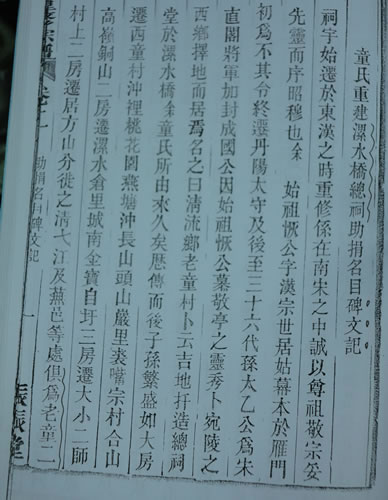 童氏重建漯水橋總祠助捐名目碑文記
祠宇始遷於東漢之時重修係在南宋之中誠以尊祖敬宗妥
先靈而序昭穆也余 始祖恢公字漢宗世居姑幕本於雁門
初為不其台終遷丹陽太守及後至三十六代孫太乙公為宋
直閣將軍加封成國公因始祖恢公墓敬亭之靈秀卜宛陵之
西鄉擇地而居焉名之曰清流鄉老童村卜云吉地扦造總祠
堂於漯水橋余童氏所由來久矣歷傳而後子孫繁盛如大房
遷西童村沖裡桃花園燕塘沖長山頭山嚴里裘嘴宗村合山
高嶺銅山二房遷漯水倉里城南金寶白圩三房遷大小二師
村上二房遷居方山分徙之清弋江及蕪邑等處俱為老童二
宗譜 助捐名目碑文記 一 振振堂